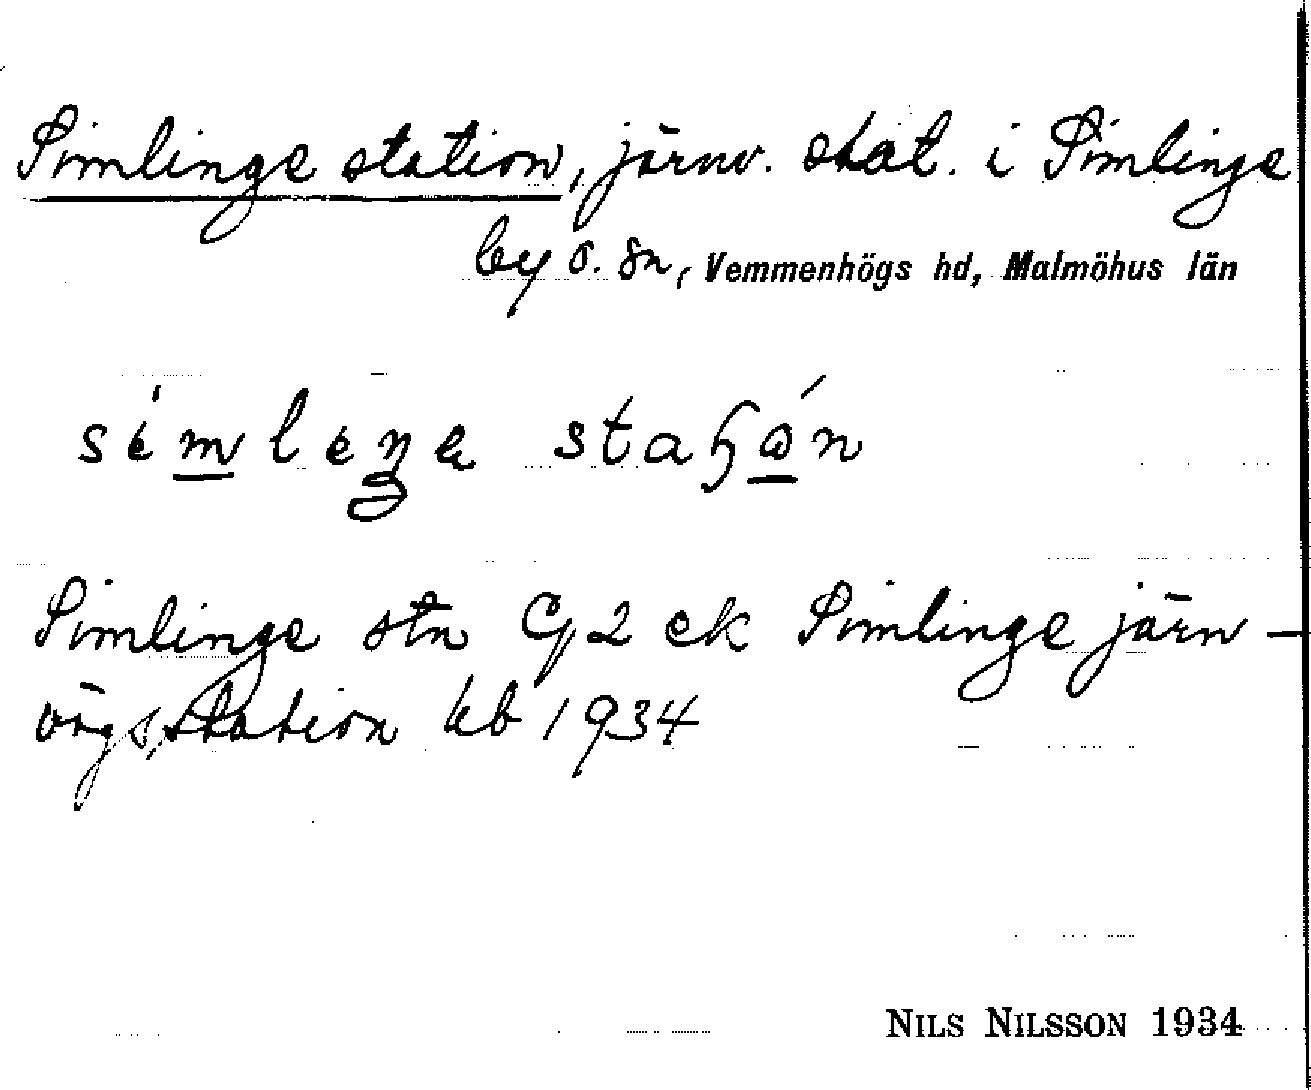 Simlinge station, järnv. stat. i Simlinge
by o. sn, Vemmenhögs hd, Malmöhus län
Simlinge stn G 2 ek Simlinge järn-
vägsstation kb 1934
NILS NILSSON 1934